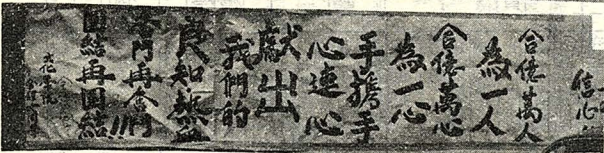 信心
合億萬人
為一人
合億萬心
為一心
手攜手
心連心
獻出
我們的
良知熱血
奮鬥再奮鬥!!!
團結再團結